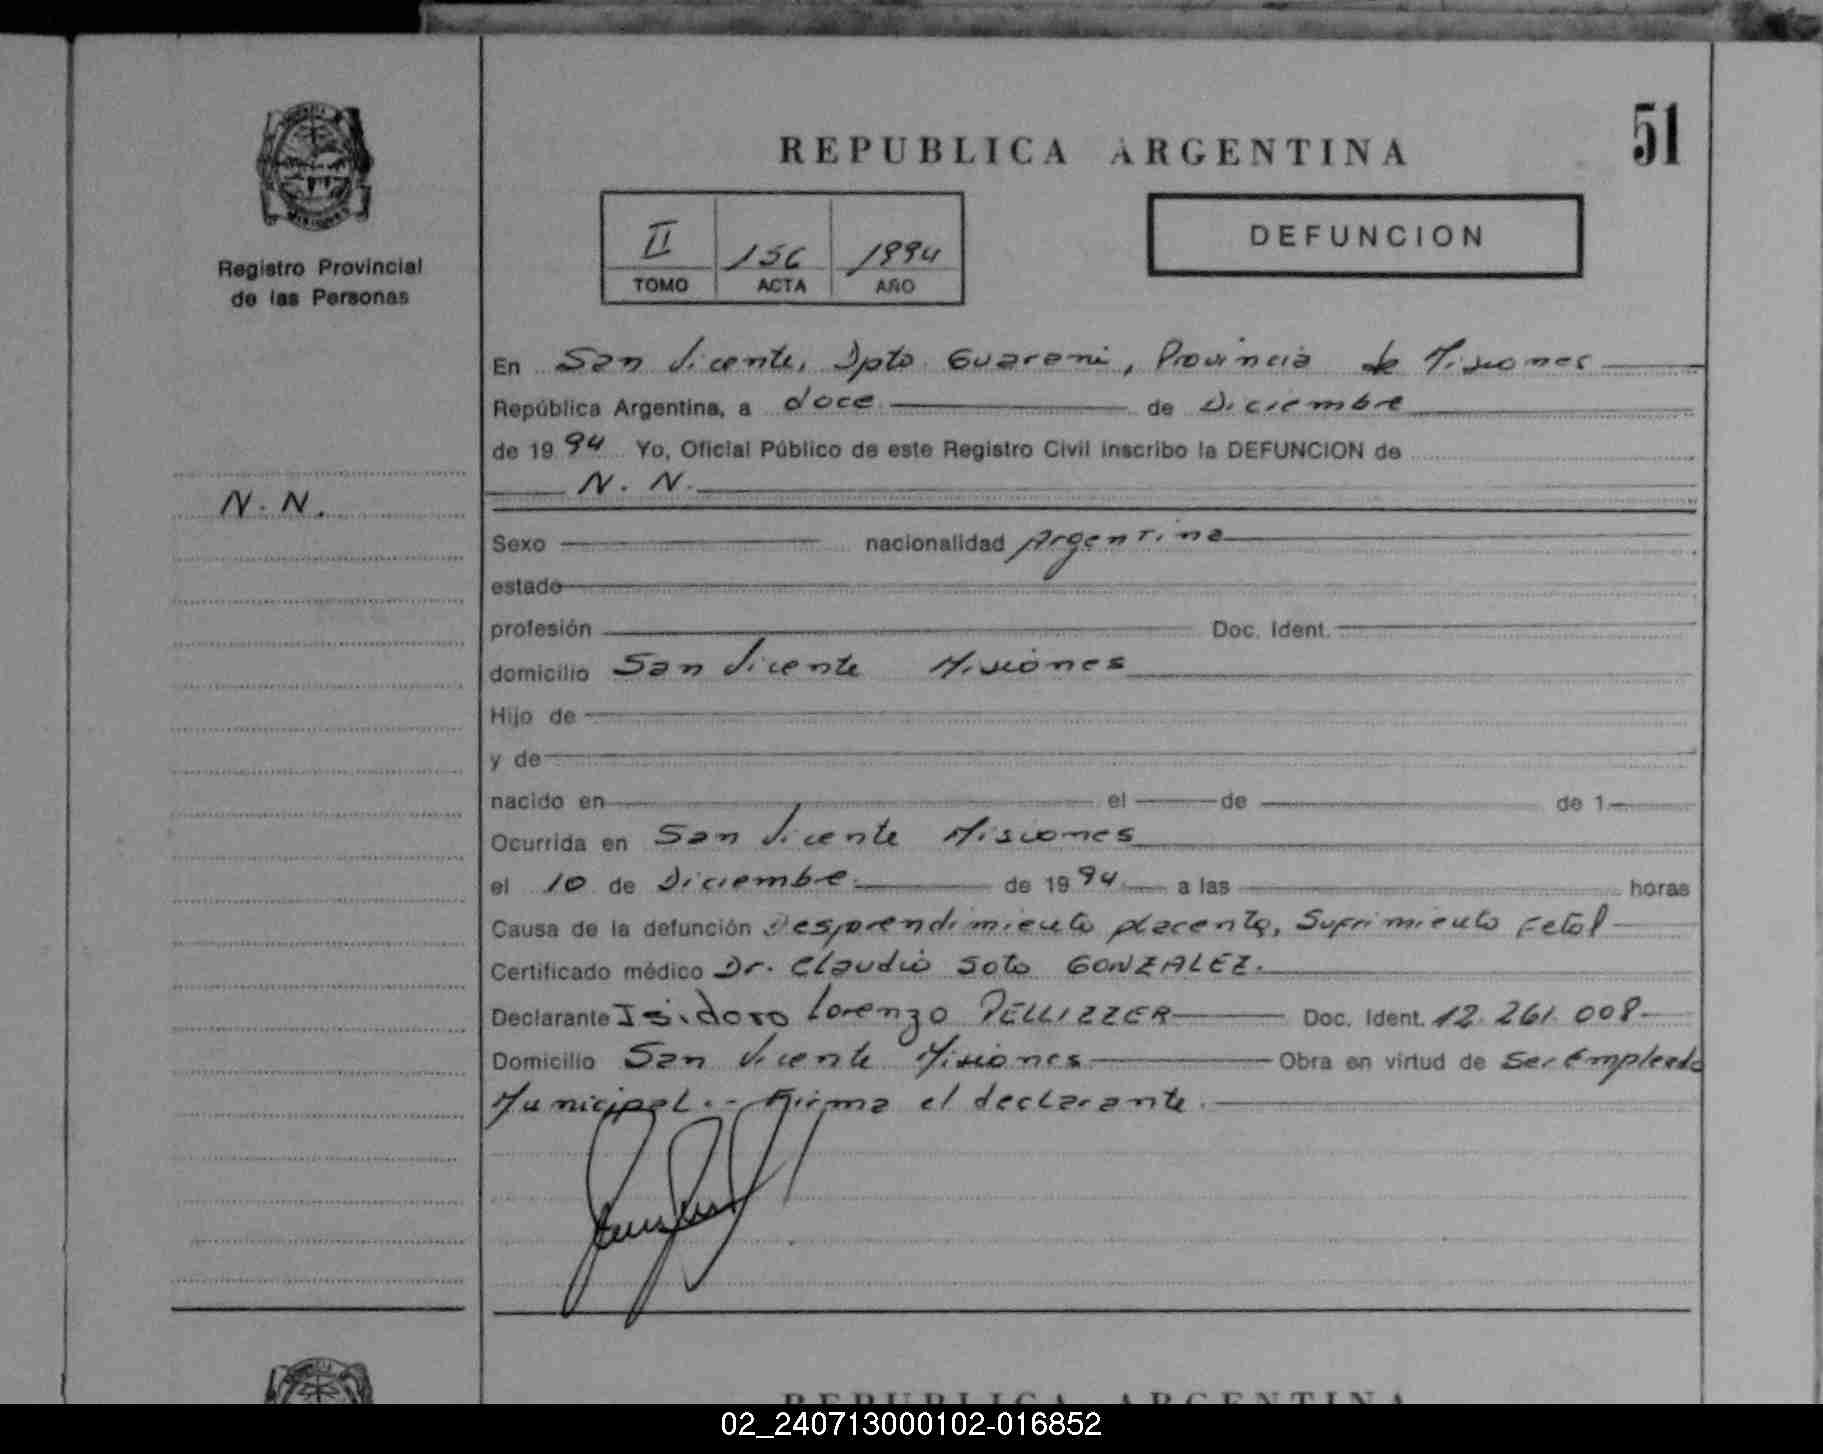 51
REPUBLICA ARGENTINA
II 156 1994
TOMO ACTA AÑO
DEFUNCION
Registro Provincial
de las Personas
N. N.
En San Vicente, Dpto Guarani, Provincia de Misiones
República Argentina, a doce de Diciembre
de 19 94 Yo, Oficial Público de este Registro Civil inscribo la DEFUNCION de
N. N.
Sexo nacionalidad Argentina
estado
profesión Doc. Ident.
domicilio San Vicente Misiones
Hijo de
y de
nacido en el de de 1
Ocurrida en San Vicente Misiones
el 10 de Diciembre de 19 94 a las horas
Causa de la defunción Desprendimiento placenta, Sufrimiento Fetal
Certificado médico Dr. Claudio Soto GONZALEZ.
Declarante Isidoro Lorenzo PELLIZZER Doc. Ident. 12.261.008
Domicilio San Vicente Misiones Obra en virtud de Ser Empleado
Municipal.- Firma el declarante.
REPUBLICA ARGENTINA
02_240713000102-016852